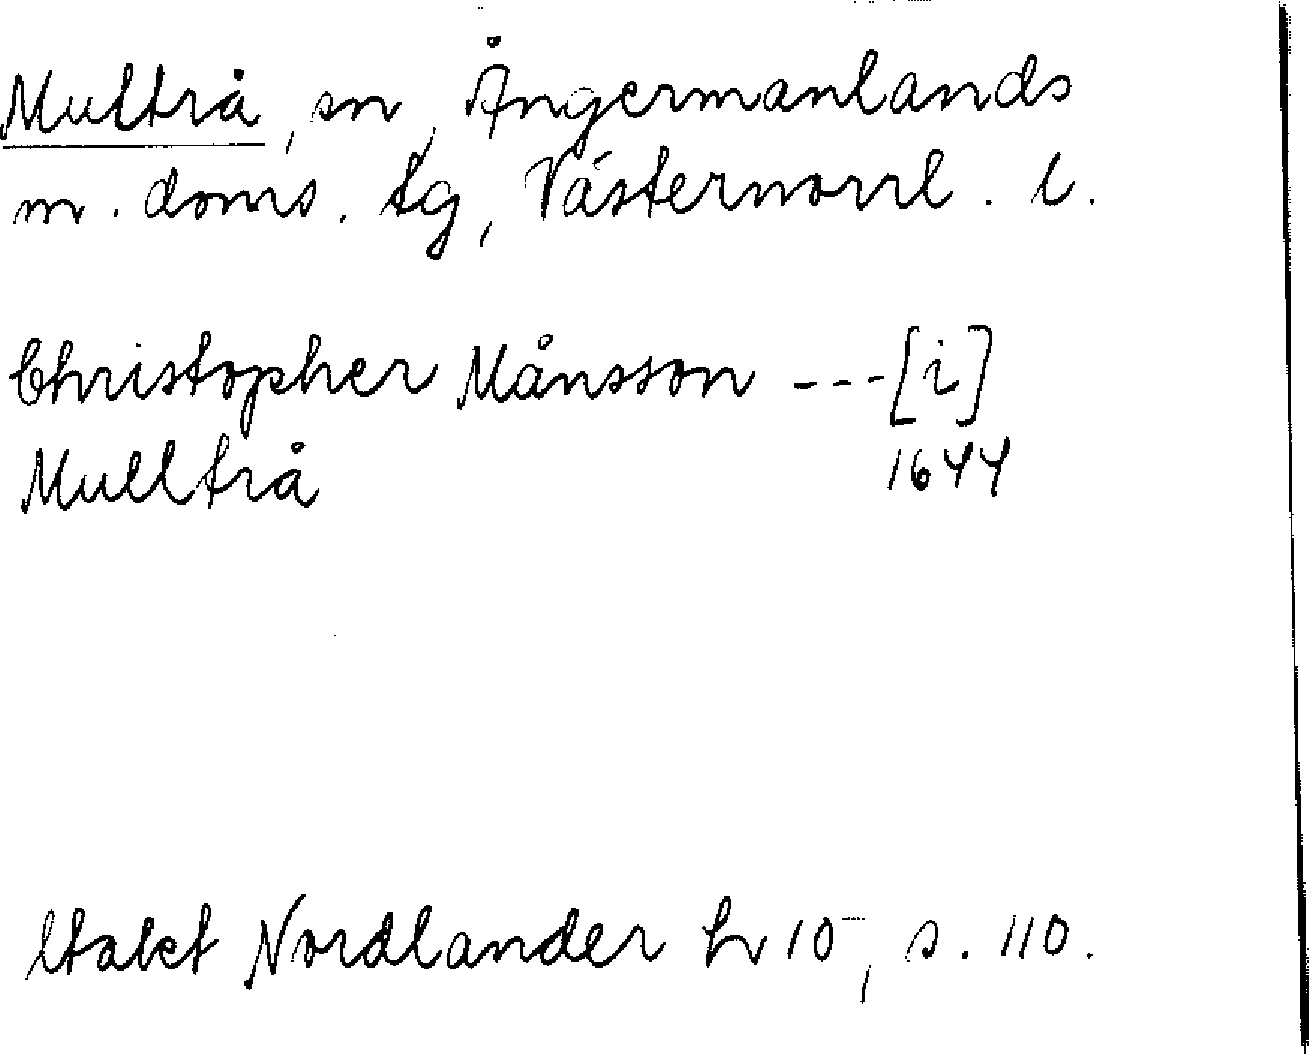 Multrå, sn, Ångermanlands
m. doms. tg, Västernorrl. l.
Christopher Månsson ---[i]
Mulltrå 1644
Nordlander 10, s. 110.